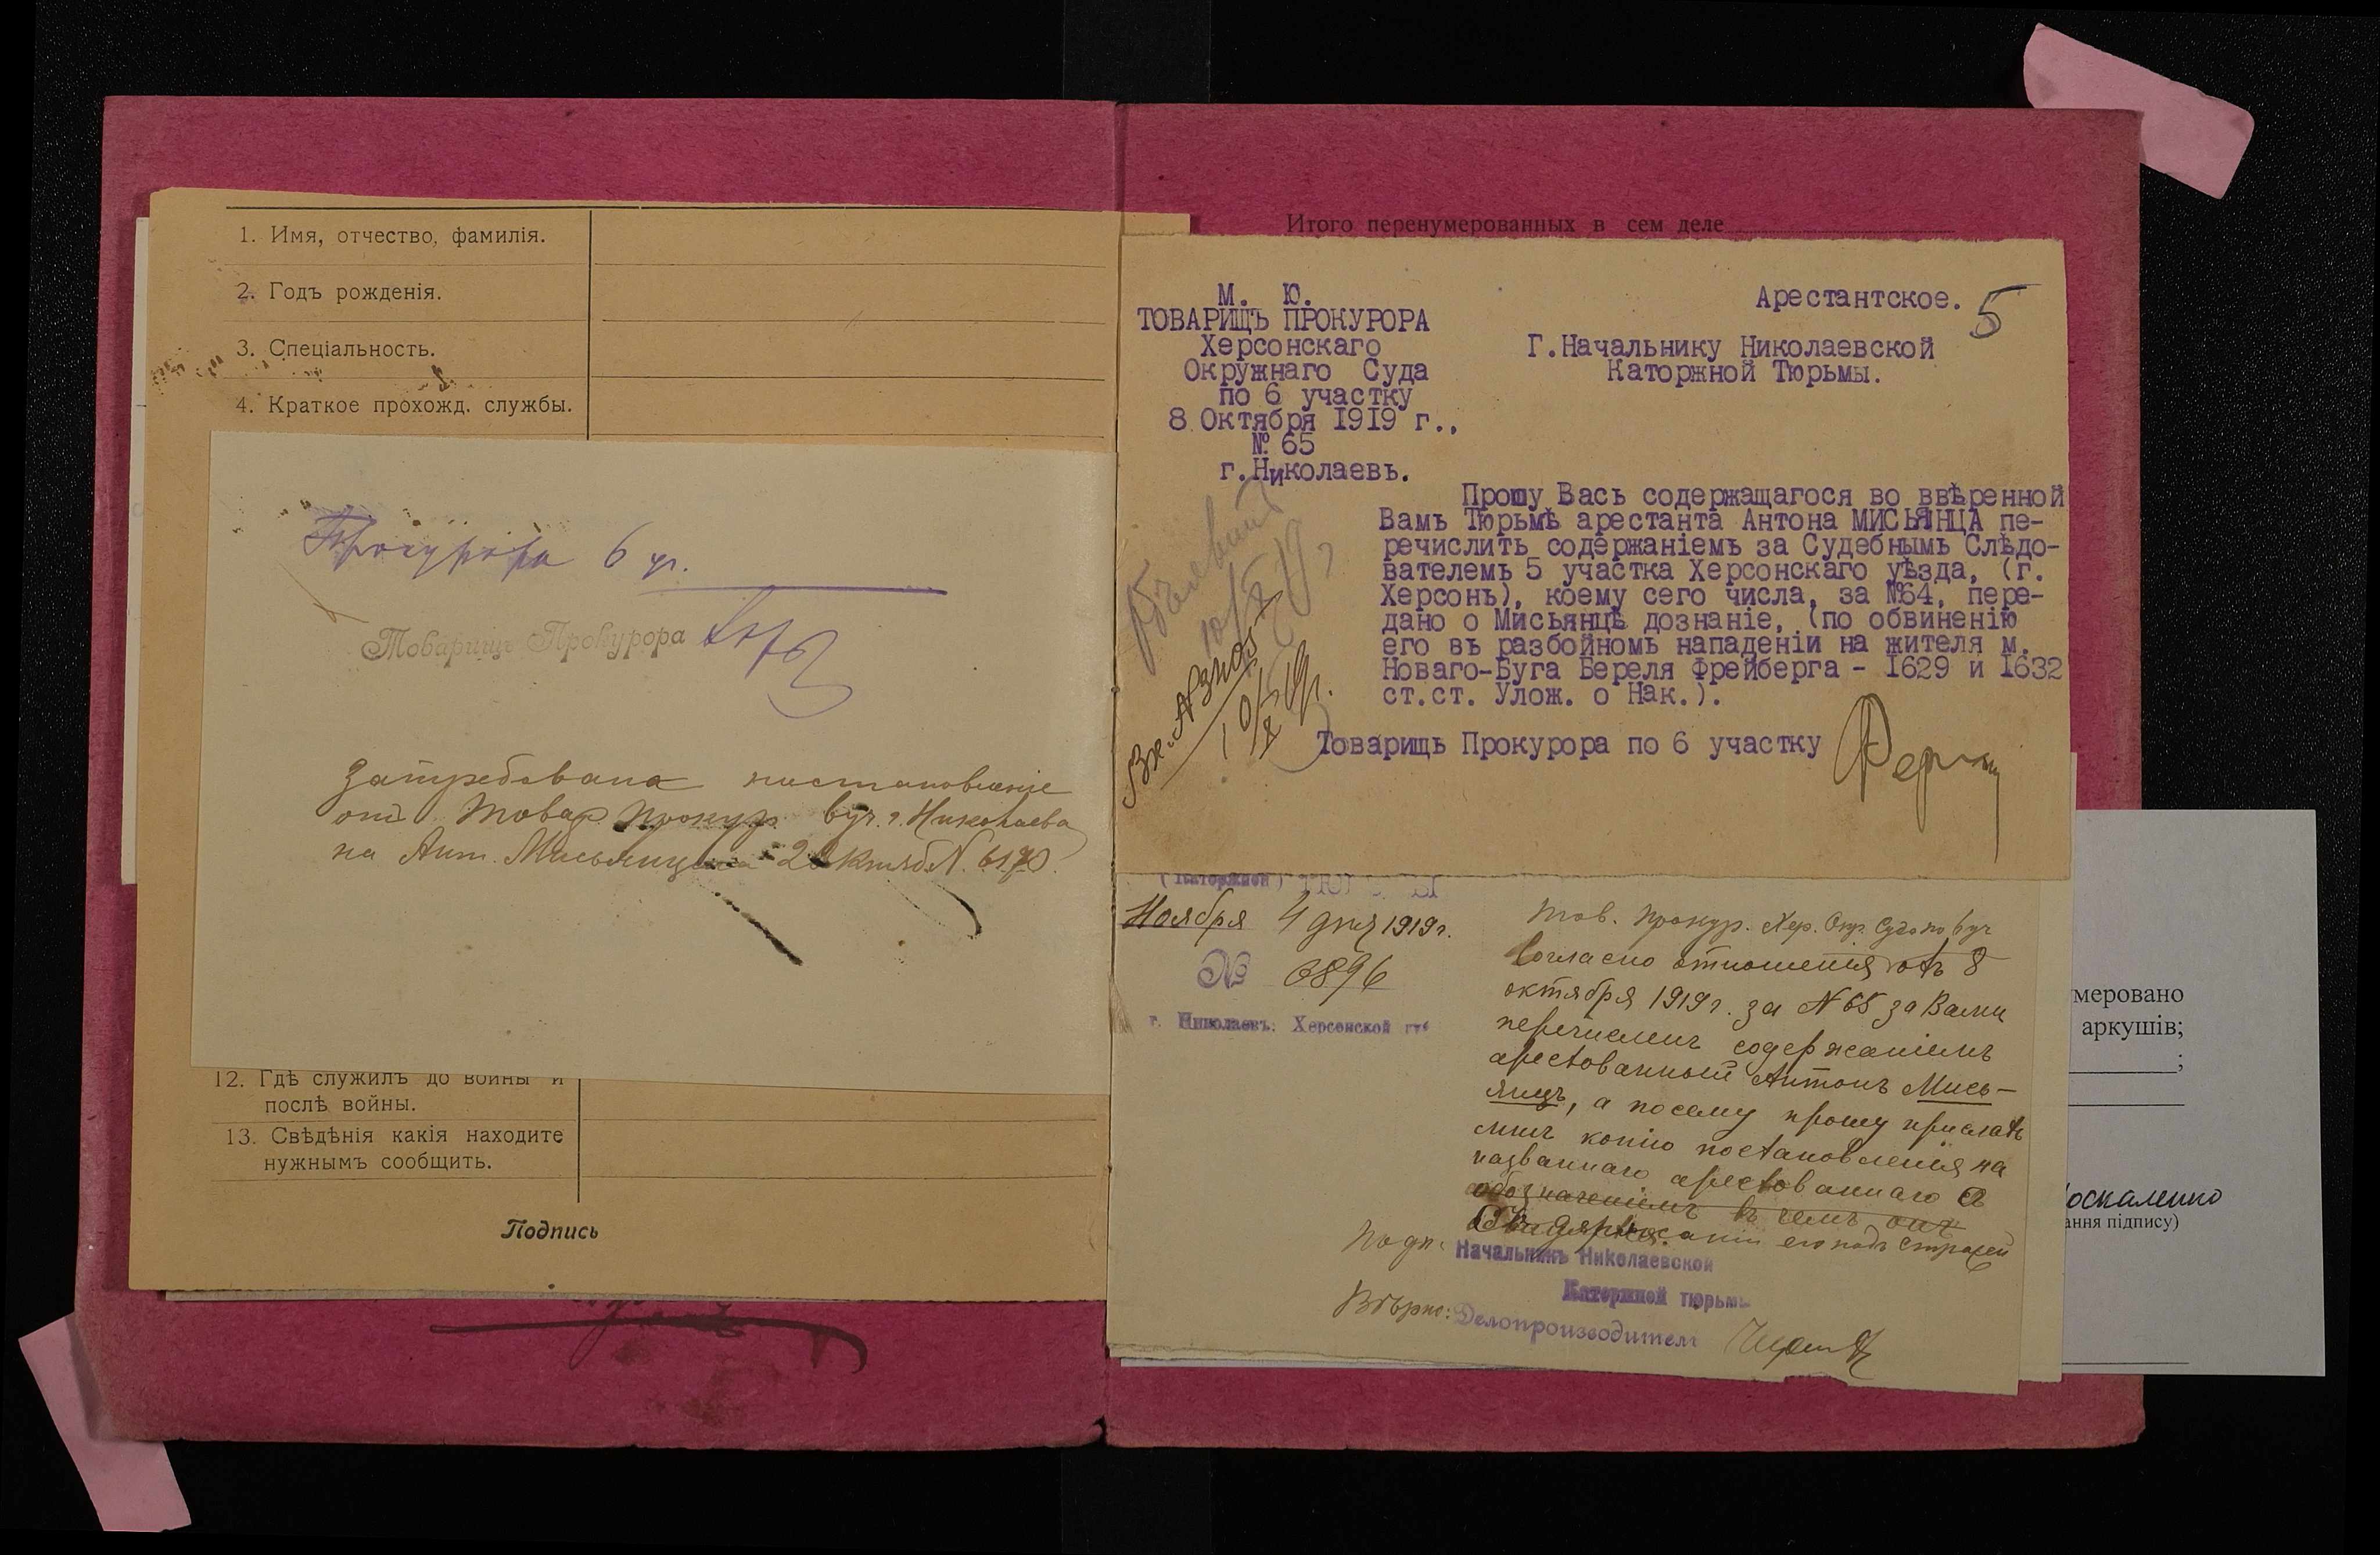 1. Имя, отчество, фамилія.
2. Годъ рожденія.
3. Спеціальность.
4. Краткое прохожд. службы.
Прокурора 6 уч.
Товарищъ Прокурора
Затребована постановленіе
отъ Товар. Прокур. 6 уч. г. Николаева
на Ант. Мисьянца 2 Октяб. N. 6170.
12. Гдѣ служилъ до войны и
послѣ войны.
13. Свѣдѣнія какія находите
нужнымъ сообщить.
Подпись
Итого перенумерованных в сем деле
М. Ю.
ТОВАРИЩЪ ПРОКУРОРА
Херсонскаго
Окружнаго Суда
по 6 участку
8 Октября 1919 г.,
№ 65
г.Николаевъ.
Арестантское. 5
Г.Начальнику Николаевской
Каторжной Тюрьмы.
Прошу Васъ содержащагося во ввѣренной
Вамъ Тюрьмѣ арестанта Антона МИСЬЯНЦА пе-
речислить содержаніемъ за Судебнымъ Слѣдо-
вателемъ 5 участка Херсонскаго уѣзда, (г.
Херсонъ), коему сего числа, за №64, пере-
дано о Мисьянцѣ дознаніе, (по обвиненію
его въ разбойномъ нападеніи на жителя м.
Новаго-Буга Береля Фрейберга - 1629 и 1632
ст.ст. Улож. о Нак.).
Товарищъ Прокурора по 6 участку
10/X 19г.
Вх.
10/X 19г.
(Каторжной) ТЮРЬМЫ
Ноября 4 дня 1919 г.
№ 6896
г. Николаевъ. Херсонской губ
Тов. Прокур. Хер. Окр. Суда по 6 уч
Согласно отношенія отъ 8
октября 1919 г. за N 65 за Вами
перечисленъ содержаніемъ
арестованный Антонъ Мись-
янцъ, а посему прошу прислать
мнѣ копію постановленія на
названнаго арестованнаго о
обозначеніемъ въ чемъ онъ
содержаніи его подъ стражей
Подп. Начальникъ Николаевской
Каторжной тюрьмы
Вѣрно: Делопроизводитель
умеровано
аркушів;
;
оскаленко
ання підпису)